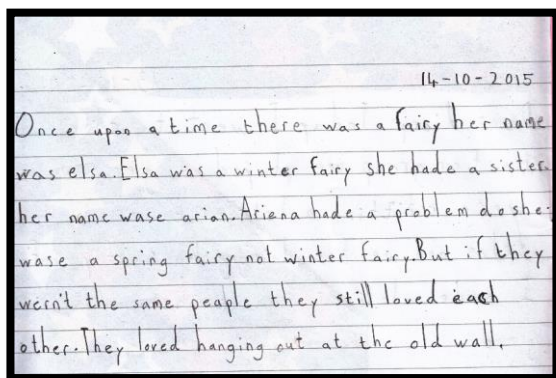 14-10-2015
Once upon a time there was a fairy her name
was elsa. Elsa was a winter fairy she hade a sister.
her name wase arian. Ariena hade a problem do she
wase a spring fairy not winter fairy. But if they
wern't the same peaple they still loved each
other. They loved hanging out at the old wall.